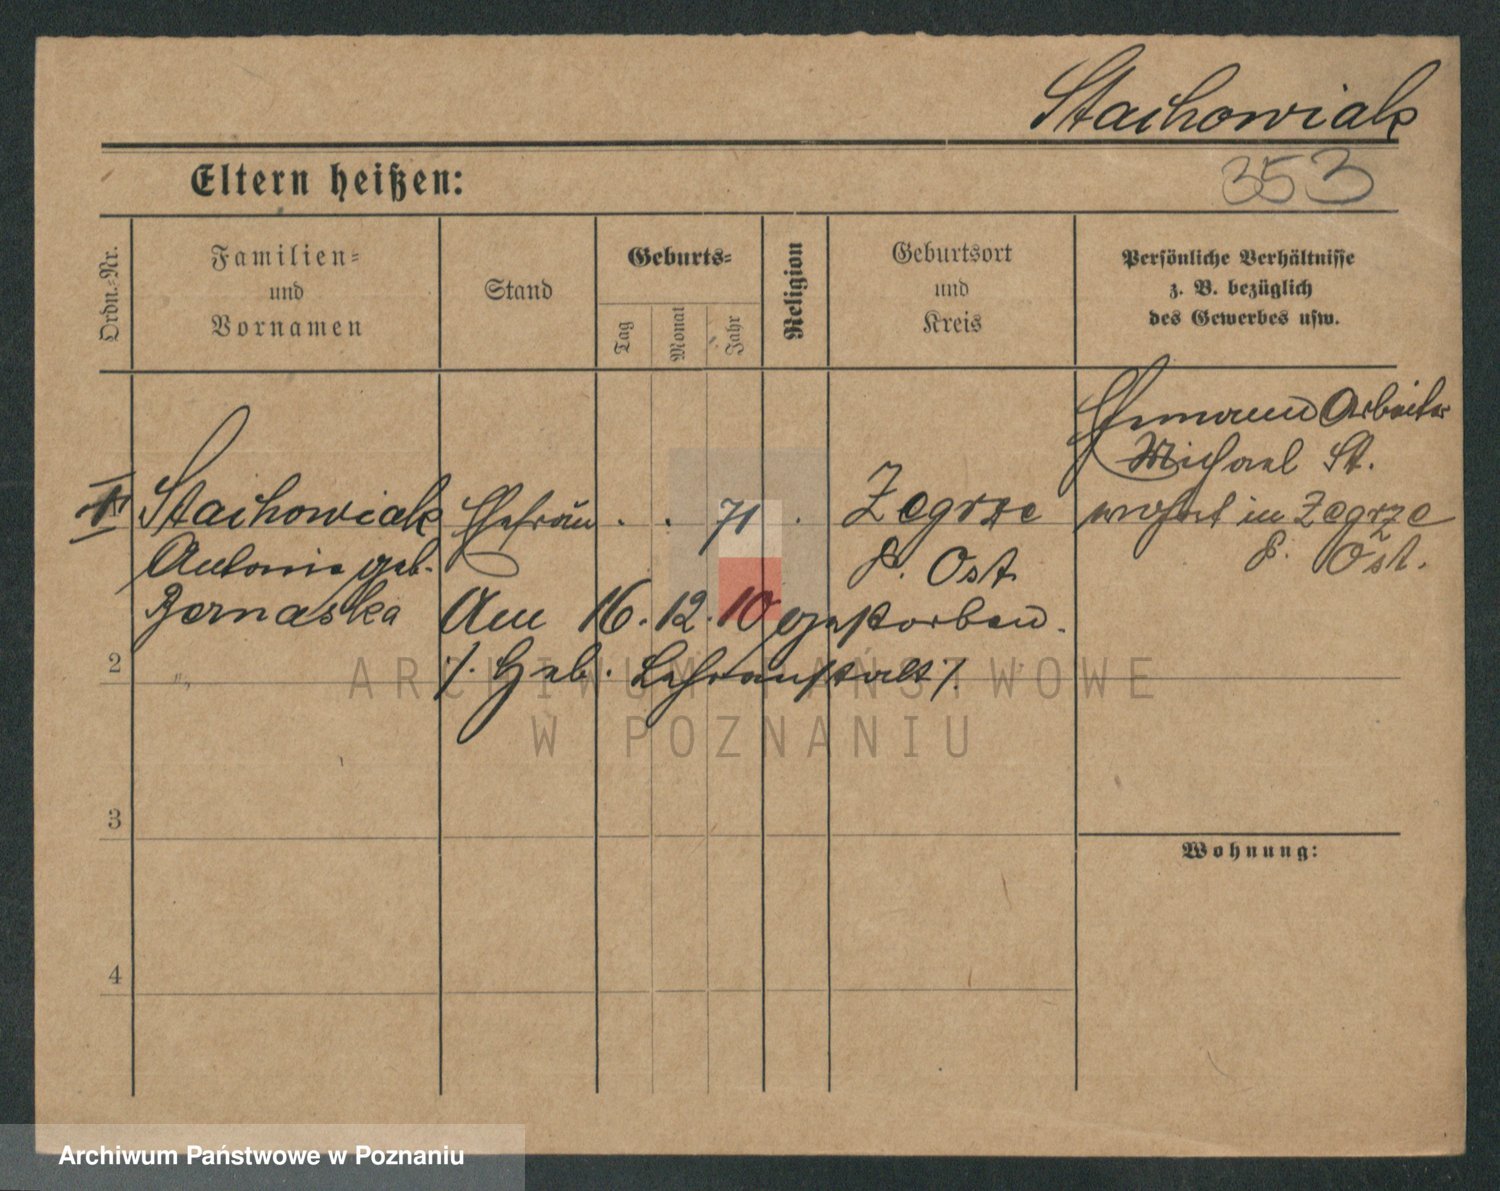 Stachowiak
353
Eltern heißen:
Ordn.-Nr.
Familien-
und
Vornamen
Stand
Geburts-
Tag
Monat
Jahr
Religion
Geburtsort
und
Kreis
Persönliche Verhältnisse
z. B. bezüglich
des Gewerbes usw.
Ehemann Arbeiter
Michael St.
wohnt in Zegrze
P. Ost.
1 Stachowiak Ehefrau . . 71 . Zegrze
Antonie geb. P. Ost
Bernaska Am 16. 12. 10 gestorben.
2 ./. Heb. Lehranstalt ./.
ARCHIWUM PAŃSTWOWE
W POZNANIU
3
Wohnung:
4
Archiwum Państwowe w Poznaniu